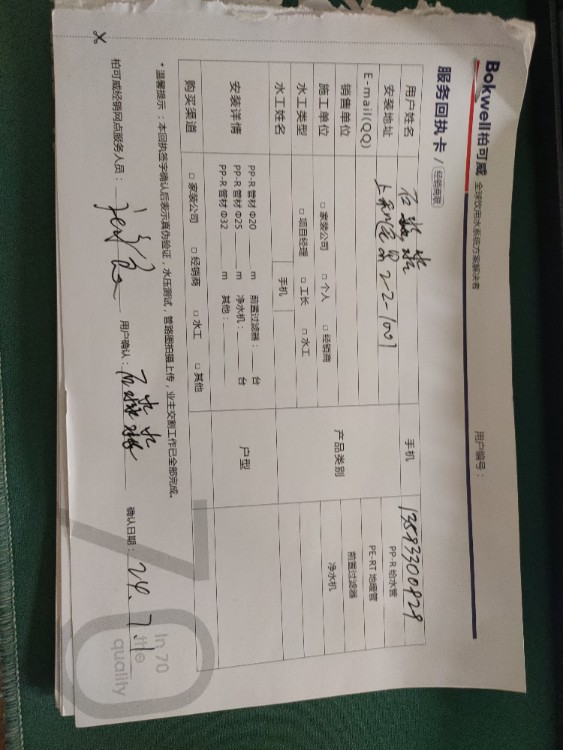 Bokwell柏可威 全球饮用水系统方案解决者
用户编号：
服务回执卡 / 经销商联
用户姓名 手机 13593300929
安装地址 22-1001 产品类别 PP-R 给水管
E-mail(QQ) PE-RT 地暖管
销售单位 前置过滤器
施工单位 □ 家装公司 □ 个人 □ 经销商 净水机
水工类型 □ 项目经理 □ 工长 □ 水工
水工姓名 手机
安装详情 PP-R 管材 Φ20 m 前置过滤器： 台 户型
PP-R 管材 Φ25 m 净水机： 台
PP-R 管材 Φ32 m 其他：
购买渠道 □ 家装公司 □ 经销商 □ 水工 □ 其他
* 温馨提示：本回执签字确认后表示真伪验证，水压测试，管路图拍摄上传，业主交割工作已全部完成。
柏可威经销网点服务人员： 用户确认： 确认日期： 24.7.1
70
In 70
the
quality